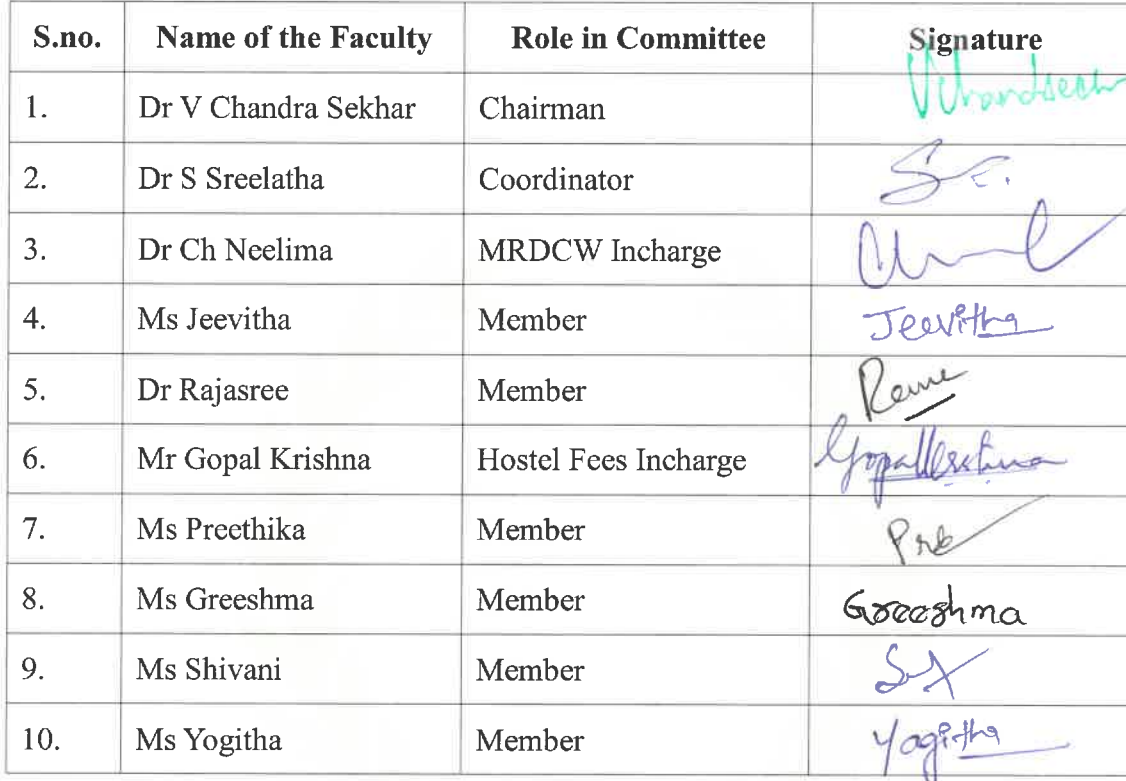 S.no. Name of the Faculty Role in Committee Signature
1. Dr V Chandra Sekhar Chairman
2. Dr S Sreelatha Coordinator
3. Dr Ch Neelima MRDCW Incharge
4. Ms Jeevitha Member Jeevitha
5. Dr Rajasree Member
6. Mr Gopal Krishna Hostel Fees Incharge Gopalkrishna
7. Ms Preethika Member Pre
8. Ms Greeshma Member Greeshma
9. Ms Shivani Member
10. Ms Yogitha Member Yogitha